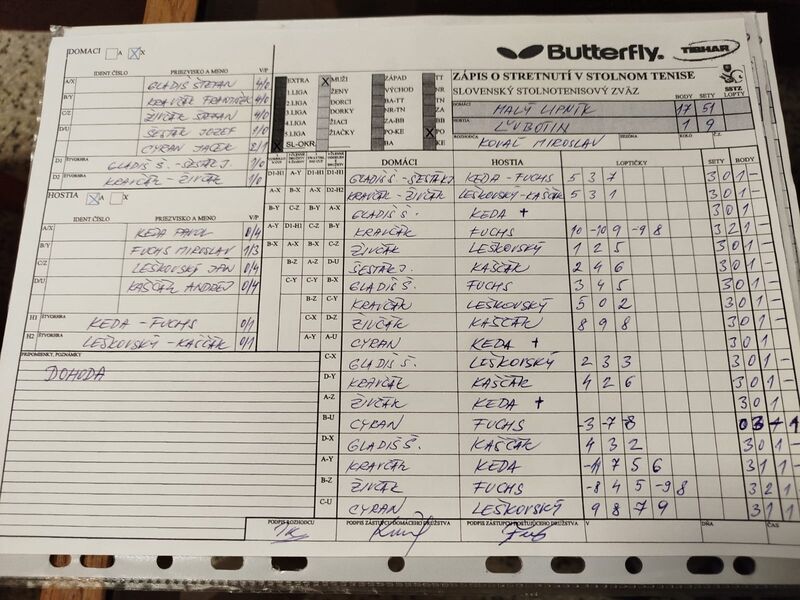 DOMACI A X
Butterfly. TIBHAR
IDENT ČÍSLO PRIEZVISKO A MENO V/P
A/X GLADIŠ ŠTEFAN 4/0
B/Y KRAVČÁK FRANTIŠEK 4/0
C/Z ŽIVČÁK ŠTEFAN 4/0
D/U ŠESTÁK JOZEF 1/0
CYRAN JACEK 2/1
D1 ŠTVORHRA GLADIŠ Š. - ŠESTÁK J. 1/0
D2 ŠTVORHRA KRAVČÁK - ŽIVČÁK 1/0
HOSTIA A X
IDENT ČÍSLO PRIEZVISKO A MENO V/P
A/X KEDA PAVOL 0/4
B/Y FUCHS MIROSLAV 1/3
C/Z LEŠKOVSKÝ JÁN 0/4
D/U KAŠČÁK ANDREJ 0/4
H1 ŠTVORHRA KEDA - FUCHS 0/1
H2 ŠTVORHRA LEŠKOVSKÝ - KAŠČÁK 0/1
PRIPOMIENKY, POZNÁMKY
DOHODA
EXTRA X MUŽI ZÁPAD TT
1.LIGA ŽENY VÝCHOD NR
2.LIGA DORCI BA-TT TN
3.LIGA DORKY NR-TN ZA
4.LIGA ŽIACI ZA-BB BB
5.LIGA ŽIAČKY PO-KE X PO
X SL-OKR. BA KE
ZÁPIS O STRETNUTÍ V STOLNOM TENISE
SLOVENSKÝ STOLNOTENISOVÝ ZVÄZ
SSTZ
BODY SETY LOPTY
DOMÁCI MALÝ LIPNÍK 17 51
HOSTIA ĽUBOTÍN 1 9
ROZHODCA KOVAĽ MIROSLAV SEZÓNA KOLO Č.
DOMÁCI HOSTIA LOPTIČKY SETY BODY
D1-H1 A-Y D1-H1 D1-H1 GLADIŠ - ŠESTÁK J KEDA - FUCHS 5 3 7 3 0 1 -
A-X B-X A-X D2-H2 KRAVČÁK - ŽIVČÁK LEŠKOVSKÝ - KAŠČÁK 5 3 1 3 0 1 -
B-Y C-Z B-Y A-X GLADIŠ Š. KEDA + 3 0 1 -
A-Y D1-H1 C-Z B-Y KRAVČÁK FUCHS 10 -10 9 -9 8 3 2 1 -
B-X A-X B-X C-Z ŽIVČÁK LEŠKOVSKÝ 1 2 5 3 0 1 -
B-Z A-Z D-U ŠESTÁK J. KAŠČÁK 2 4 6 3 0 1 -
C-Y C-Y B-X GLADIŠ Š. FUCHS 3 4 5 3 0 1 -
B-Z C-Y KRAVČÁK LEŠKOVSKÝ 5 0 2 3 0 1 -
C-X D-Z ŽIVČÁK KAŠČÁK 8 9 8 3 0 1 -
A-Y A-U CYRAN KEDA + 3 0 1 -
C-X GLADIŠ Š. LEŠKOVSKÝ 2 3 3 3 0 1 -
D-Y KRAVČÁK KAŠČÁK 4 2 6 3 0 1 -
A-Z ŽIVČÁK KEDA + 3 0 1 -
B-U CYRAN FUCHS -3 -7 -8 0 3 - 1
D-X GLADIŠ Š. KAŠČÁK 4 3 2 3 0 1 -
A-Y KRAVČÁK KEDA -11 7 5 6 3 1 1 -
B-Z ŽIVČÁK FUCHS -8 4 5 -9 8 3 2 1 -
C-U CYRAN LEŠKOVSKÝ 9 8 7 9 3 1 1
PODPIS ROZHODCU PODPIS ZÁSTUPCU DOMÁCEHO DRUŽSTVA PODPIS ZÁSTUPCU HOSŤUJÚCEHO DRUŽSTVA V DŇA ČAS